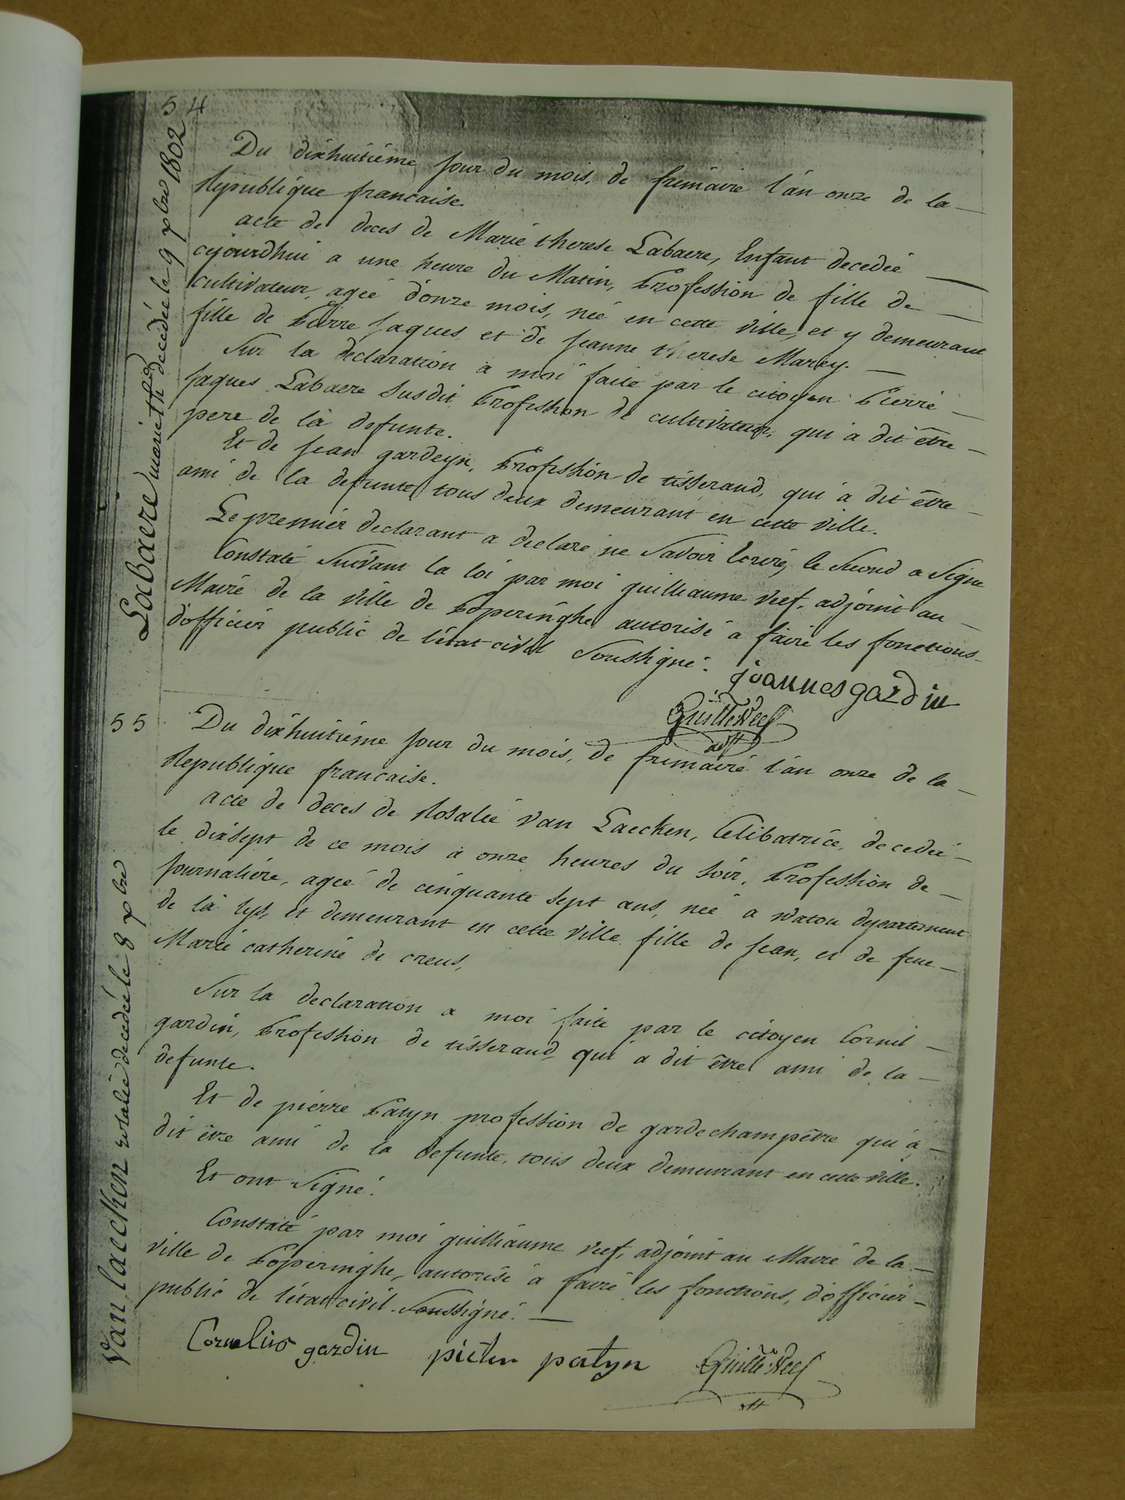 54
Labaere marie th decédée le 9 xbre 1802
Du dixhuitiême jour du mois, de frimaire l'an onze de la
Republique francaise.
acte de deces de Marie therese Labaere, Enfant decedée
cejourdhui a une heure du Matin, Profession de fille de
cultivateur, ageé d'onze mois, née en cette ville, et y demeurant
fille de Pierre Jaques et de Jeanne therese Marey.
Sur la declaration a moi faite par le citoyen Pierre
Jaques Labaere susdit Profession de cultivateur, qui a dit être
pere de la defunte.
Et de Jean gardeyn, Profession de tisserand, qui a dit être
ami de la defunte, tous deux demeurant en cette ville.
Le premier declarant a declaré ne savoir Ecrire, le second a signé
Constaté suivant la loi par moi guilliaume Veef, adjoint au
Maire de la ville de Poperinghe autorisé a faire les fonctions
d'officier public de l'état civil soussigné.
joannes gardin
Guille Veef
adjt
55
Van Laecken rosalie decedée le 8 xbre
Du dixhuitiême jour du mois, de frimaire l'an onze de la
Republique francaise.
acte de deces de Rosalie Van Laecken, Celibatrice, decedée
le dixsept de ce mois a onze heures du soir, Profession de
Journaliére, ageé de cinquante sept ans, neé a Watou departement
de la Lys, et demeurant en cette ville fille de Jean, et de feue
Marie catherine de creus,
Sur la declaration a moi faite par le citoyen Cornil
gardin, Profession de tisserand qui a dit être ami de la
defunte.
Et de pierre Patyn profession de gardechampêtre qui a
dit être ami de la defunte, tous deux demeurant en cette ville.
Et ont signé.
Constaté par moi guilliaume Veef, adjoint au Maire de la
ville de Poperinghe, autorisé a faire les fonctions, d'officier
public de l'état civil soussigné.
Cornelius gardin pieter patyn Guille Veef
adjt